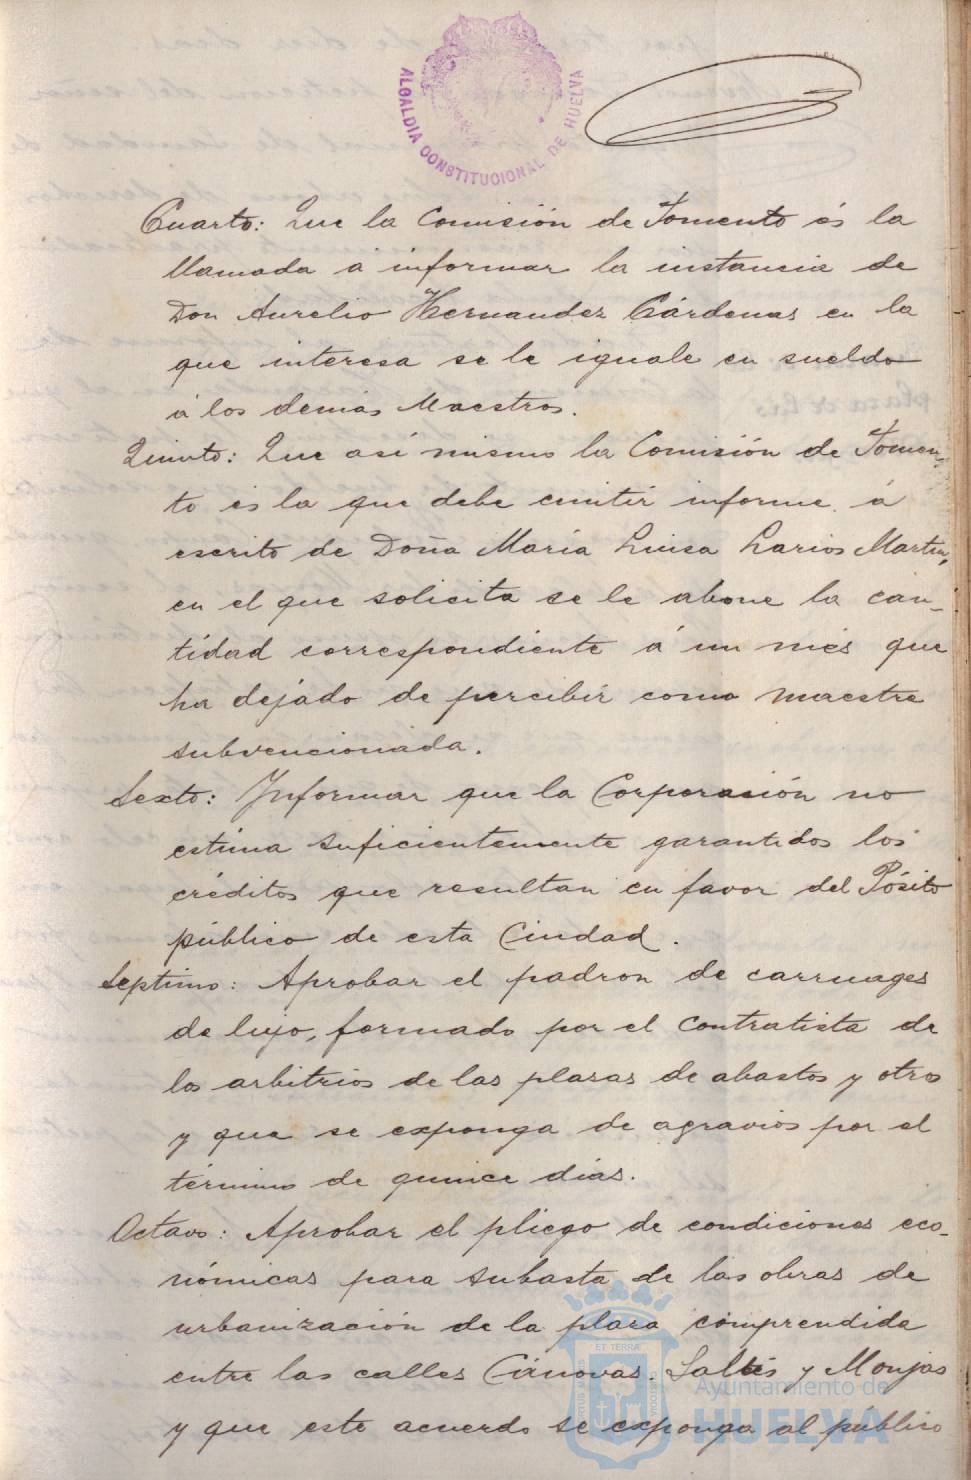 ALCALDIA CONSTITUCIONAL DE HUELVA
Cuarto: Que la Comisión de Fomento és la
llamada á informar la instancia de
Don Aurelio Hernandez Cárdenas en la
que interesa se le iguale en sueldo
á los demás Maestros.
Quinto: Que así mismo la Comisión de Fomen-
to és la que debe emitir informe á
escrito de Doña María Luisa Larios Martin,
en el que solicita se le abone la can-
tidad correspondiente á un més que
ha dejado de percibir como maestra
subvencionada.
Sexto: Informar que la Corporación no
estima suficientemente garantidos los
créditos que resultan en favor del Pósito
público de esta Ciudad.
Septimo: Aprobar el padron de carruages
de lujo, formado por el contratista de
los arbitrios de las plazas de abastos y otros
y que se exponga de agravios por el
término de quince días.
Octavo: Aprobar el pliego de condiciones eco-
nómicas para subasta de las obras de
urbanización de la plaza comprendida
entre las calles Cánovas, Saltés y Monjas
y que este acuerdo se exponga al público
ET TERRÆ
Ayuntamiento de
HUELVA